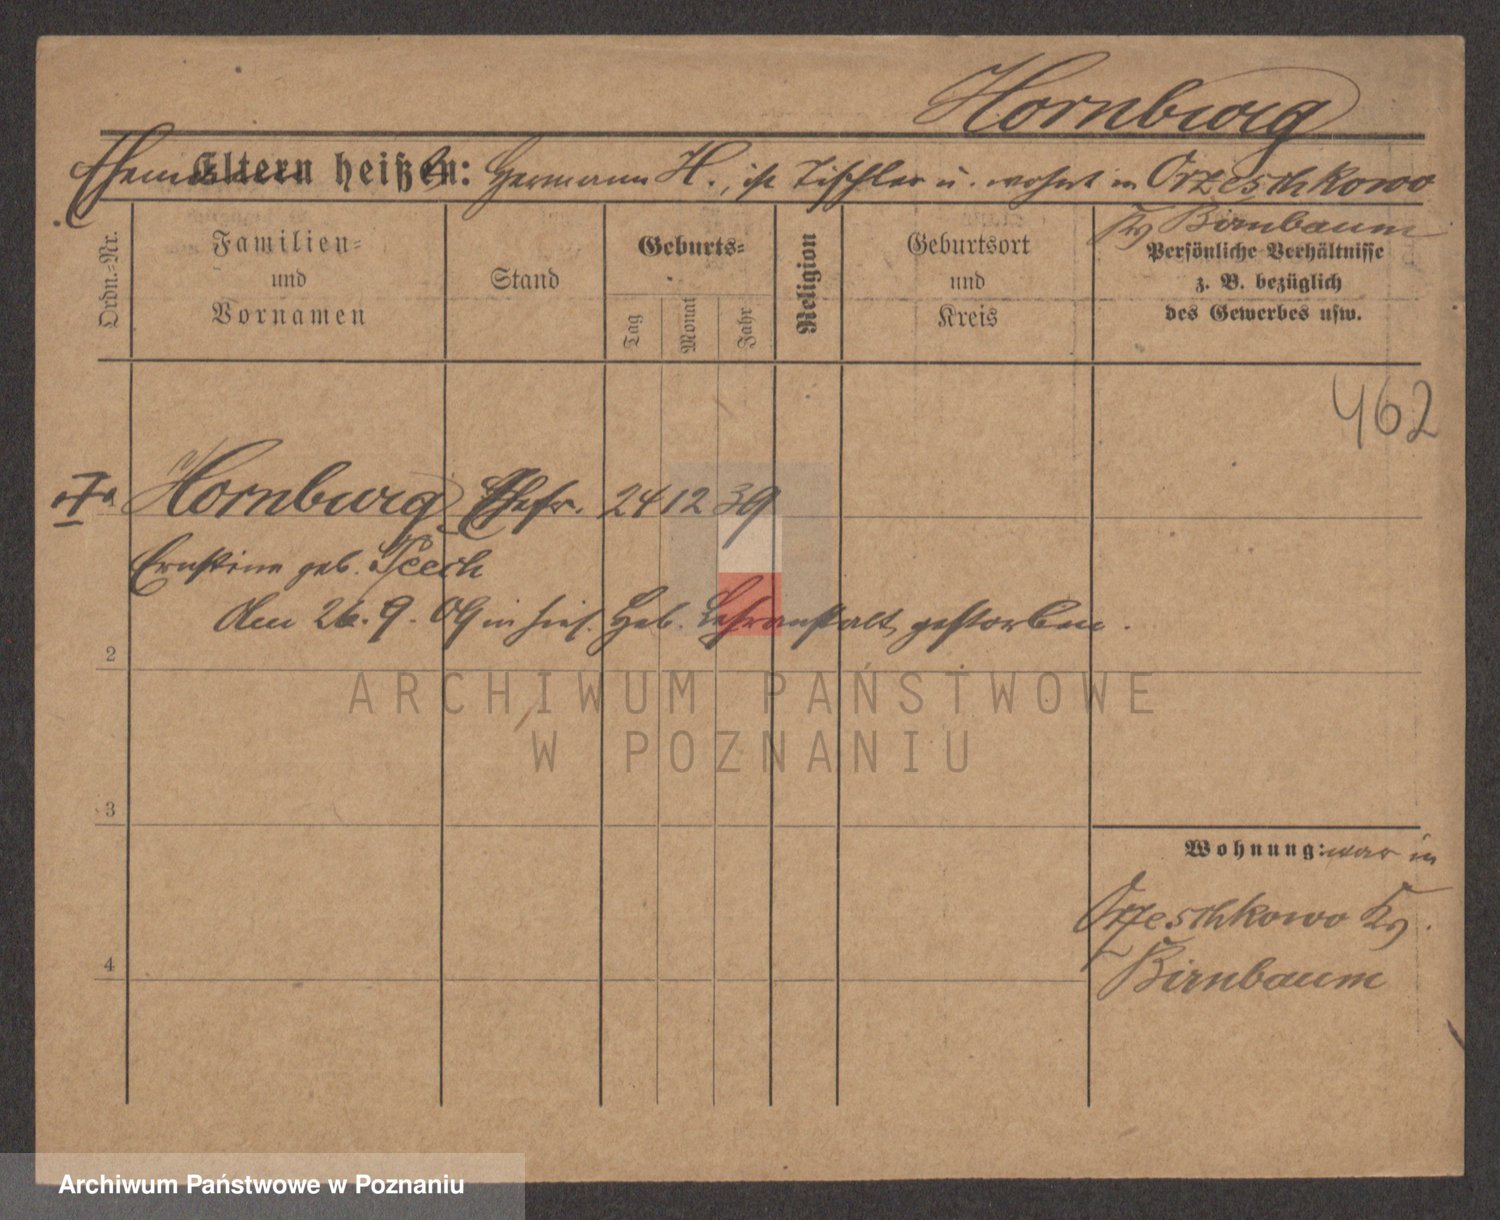 Hornburg
Eltern heißen: Hermann H., ist Tischler u. wohnt in Orzeschkowo
Kr. Birnbaum
Ordn.-Nr.
Familien-
und
Vornamen
Stand
Geburts-
Tag
Monat
Jahr
Religion
Geburtsort
und
Kreis
Persönliche Verhältnisse
z. B. bezüglich
des Gewerbes usw.
462
Hornburg Ehefr. 24 12 39
Ernstine geb.
den 26. 9. 09 in hies. Heb. Lehranstalt gestorben.
2
ARCHIWUM PAŃSTWOWE
W POZNANIU
3
Wohnung: war in
Orzeschkowo Kr.
Birnbaum
4
Archiwum Państwowe w Poznaniu